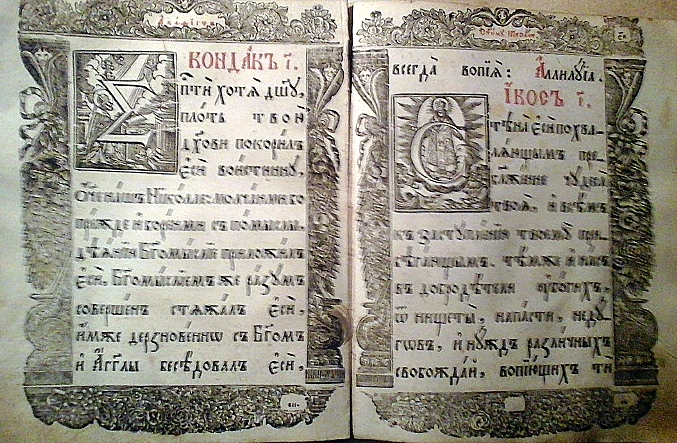 КОНДА́КЪ і҃.
Сп҃стѝ хотѧ̀ дш҃ꙋ,
пло́ть твоѝ
дх҃ови покори́лъ
є҆сѝ вои́стиннꙋ,
Ѻ҆́ч҃е на́шъ Нїко́лае: молча́ньми бо
пре́жде и҆ бо́рьми съ по́мыслы,
дѣѧ́нїю Бг҃омы́слїе приложи́лъ
є҆сѝ, Бг҃омы́слїемъ же ра́зꙋмъ
соверше́нъ стѧжа́лъ є҆сѝ,
и҆́мже дерзнове́ннѡ съ Бг҃омъ
и҆ А҆́гг҃лы бесѣ́довалъ є҆сѝ,
всегда̀ вопїѧ̀: А҆ллилꙋ́їа.
І҆́КОСЪ і҃.
Стѣна̀ є҆сѝ похва-
лѧ́ющымъ пре-
бл҃же́нне чꙋдеса̀
твоѧ̀, и҆ всѣ́мъ
къ застꙋпле́нїю твоемꙋ̀ при-
бѣга́ющымъ. тѣ́мже и҆ на́съ
въ добродѣ́тели ᲂу҆бо́гихъ,
ѿ нищеты̀, напа́сти, недꙋ́-
гѡвъ, и҆ нꙋ́ждъ разли́чныхъ
свобожда́й, вопїю́щихъ тѝ